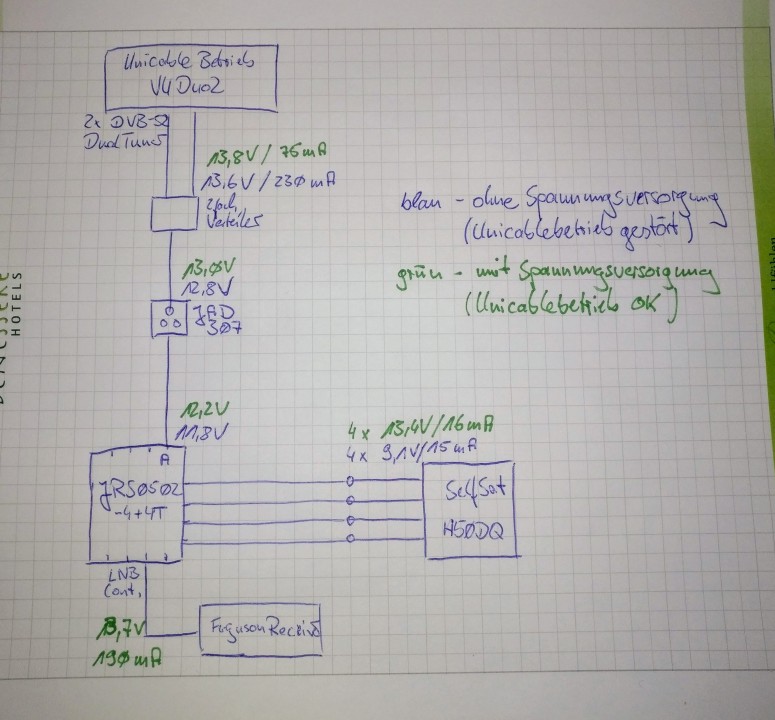 Unicable Betrieb
VU Duo2
2x DVB-S2
Dual Tuner
13,8V / 75mA
13,6V / 230mA
2fach
Verteiler
13,0V
12,8V
JAD
307
12,2V
11,8V
A
JRS0502
-4+4T
LNB
Cont.
13,7V
190mA
Ferguson Receiver
4x 13,4V/16mA
4x 9,1V/15mA
SelfSat
H50DQ
blau - ohne Spannungsversorgung
(Unicablebetrieb gestört)
grün - mit Spannungsversorgung
(Unicablebetrieb OK)
HOTELS